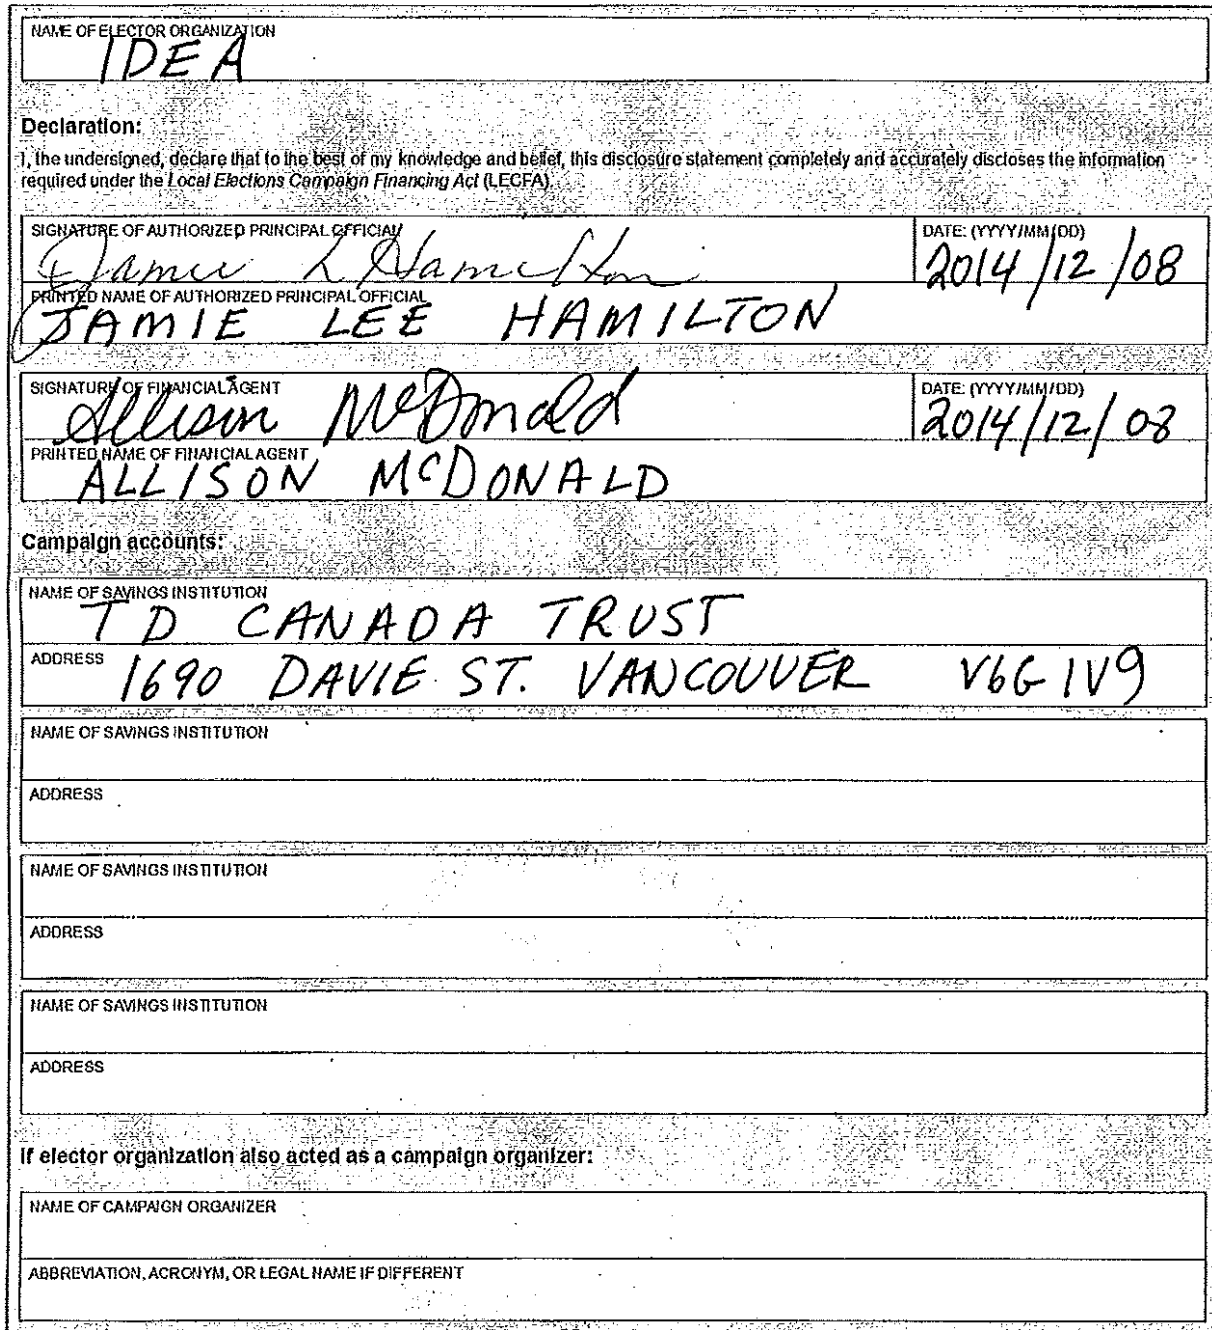 NAME OF ELECTOR ORGANIZATION
IDEA
Declaration:
I, the undersigned, declare that to the best of my knowledge and belief, this disclosure statement completely and accurately discloses the information
required under the Local Elections Campaign Financing Act (LECFA).
SIGNATURE OF AUTHORIZED PRINCIPAL OFFICIAL
Jamie L Hamilton
DATE: (YYYY/MM/DD)
2014/12/08
PRINTED NAME OF AUTHORIZED PRINCIPAL OFFICIAL
JAMIE LEE HAMILTON
SIGNATURE OF FINANCIAL AGENT
Allison McDonald
DATE: (YYYY/MM/DD)
2014/12/08
PRINTED NAME OF FINANCIAL AGENT
ALLISON McDONALD
Campaign accounts:
NAME OF SAVINGS INSTITUTION
TD CANADA TRUST
ADDRESS
1690 DAVIE ST. VANCOUVER V6G 1V9
NAME OF SAVINGS INSTITUTION
ADDRESS
NAME OF SAVINGS INSTITUTION
ADDRESS
NAME OF SAVINGS INSTITUTION
ADDRESS
If elector organization also acted as a campaign organizer:
NAME OF CAMPAIGN ORGANIZER
ABBREVIATION, ACRONYM, OR LEGAL NAME IF DIFFERENT